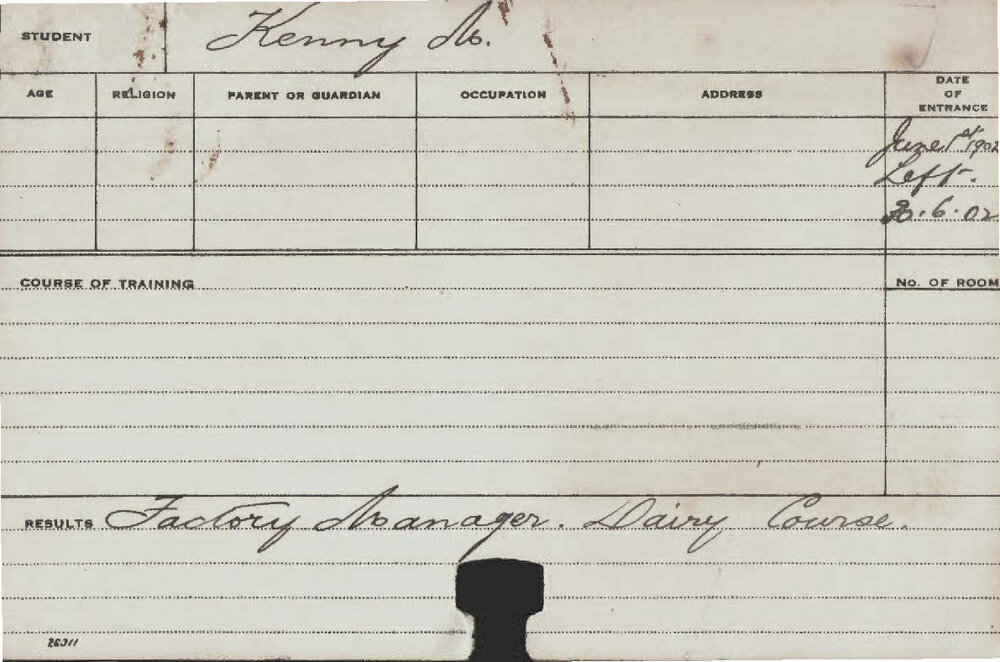 STUDENT Kenny M.
AGE RELIGION PARENT OR GUARDIAN OCCUPATION ADDRESS DATE OF ENTRANCE
June 1st 1902
Left.
30.6.02
COURSE OF TRAINING No. OF ROOM
RESULTS Factory Manager. Dairy Course.
26311